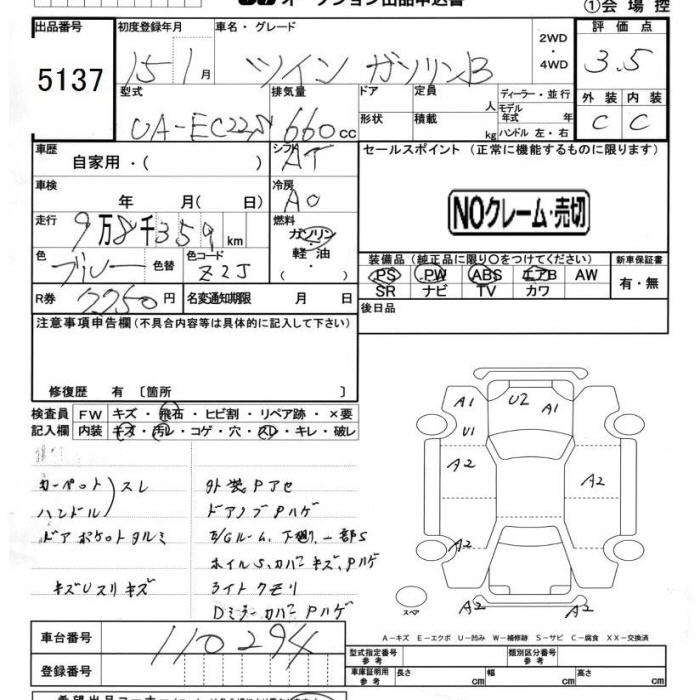 オークション出品申込書
①会場控
出品番号 初度登録年月 車名・グレード 2WD ・ 4WD 評価点
5137 15 1月 ツイン ガソリンB 3.5
型式 排気量 ドア 定員 人 ディーラー・並行 外装 内装
UA-EC22S 660cc 形状 積載 kg モデル年式 年 ハンドル 左・右 C C
車歴 自家用・( ) シフト AT セールスポイント (正常に機能するものに限ります)
車検 年 月( 日) 冷房 AC
NOクレーム・売切
走行 9万8千359km 燃料 ガソリン 軽油 ・( )
色 ブルー 色替 色コード Z2J
装備品(純正品に限り○をつけてください) 新車保証書
PS PW ABS エアB AW 有・無
SR ナビ TV カワ
R券 7250円 名変通知期限 月 日 後日品
注意事項申告欄(不具合内容等は具体的に記入して下さい)
修復歴 有 〔箇所 〕
検査員 FW キズ・飛石・ヒビ割・リペア跡・×要
記入欄 内装 キズ・汚レ・コゲ・穴・スレ・キレ・破レ
カーペット
ハンドル
スレ
ドアポケットタルミ
キズUスリキズ
外装Pアセ
ドアノブPハゲ
E/Gルーム、下廻り一部S
ホイルS、カバーキズ、Pハゲ
ライトクモリ
DミラーカバーPハゲ
A1 U2 A1
U1
A2 A2
A2
スペア A2 A2
A-キズ E-エクボ U-凹み W-補修跡 S-サビ C-腐食 XX-交換済
車台番号 110294
登録番号
型式指定番号 参考 類別区分番号 参考
車庫証明用 参考 長さ cm 幅 cm 高さ cm